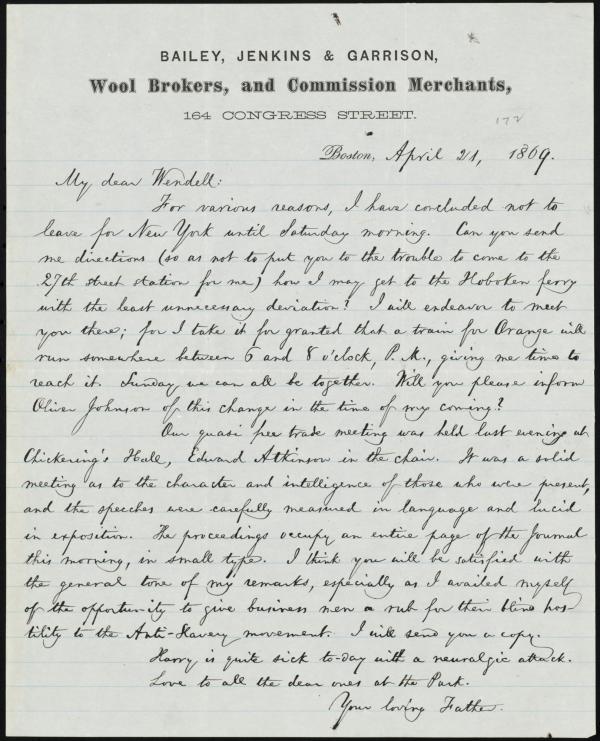 BAILEY, JENKINS & GARRISON,
Wool Brokers, and Commission Merchants,
164 CONGRESS STREET.
172
Boston, April 21, 1869.
My dear Wendell:
For various reasons, I have concluded not to
leave for New York until Saturday morning. Can you send
me directions (so as not to put you to the trouble to come to the
27th street station for me) how I may get to the Hoboken ferry
with the least unnecessary deviation? I will endeavor to meet
you there; for I take it for granted that a train for Orange will
run somewhere between 6 and 8 o'clock, P. M., giving me time to
reach it. Sunday we can all be together. Will you please inform
Oliver Johnson of this change in the time of my coming?
Our quasi free trade meeting was held last evening at
Chickering's Hall, Edward Atkinson in the chair. It was a solid
meeting as to the character and intelligence of those who were present,
and the speeches were carefully measured in language and lucid
in exposition. The proceedings occupy an entire page of the Journal
this morning, in small type. I think you will be satisfied with
the general tone of my remarks, especially as I availed myself
of the opportunity to give business men a rub for their blind hos-
tility to the Anti-Slavery movement. I will send you a copy.
Harry is quite sick to-day with a neuralgic attack.
Love to all the dear ones at the Park.
Your loving Father.